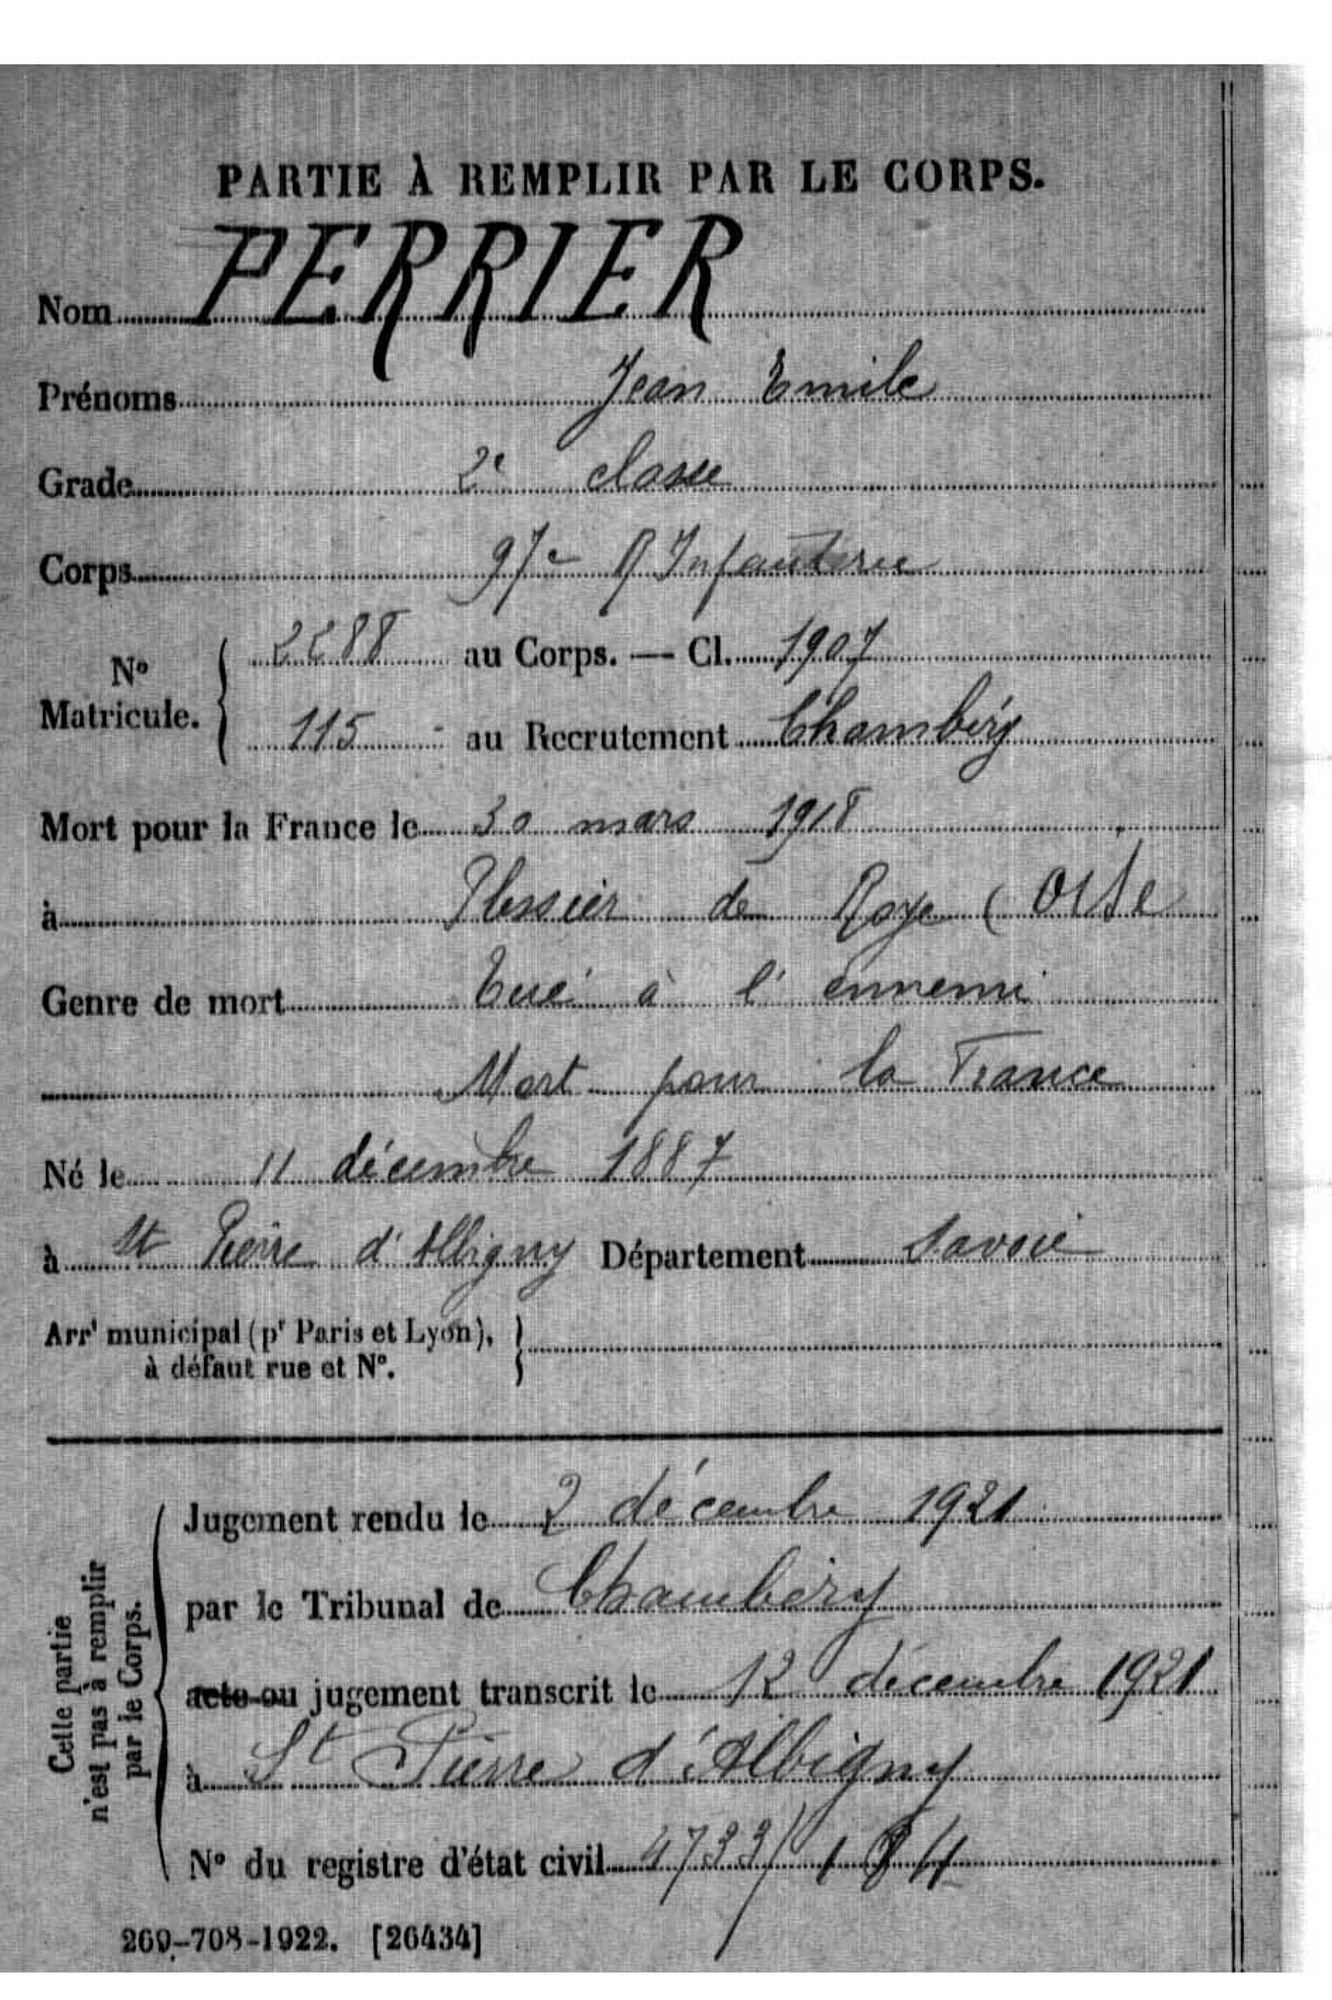 PARTIE À REMPLIR PAR LE CORPS.
Nom PERRIER
Prénoms Jean Emile
Grade 2e classe
Corps 97e R Infanterie
No Matricule. 2288 au Corps. — Cl. 1907
115 au Recrutement Chambéry
Mort pour la France le 30 mars 1918
à Plessier de Roye (OISe
Genre de mort Tué à l'ennemi
Mort pour la France
Né le 11 décembre 1887
à St Pierre d'Albigny Département Savoie
Arrt municipal (pr Paris et Lyon),
à défaut rue et No.
Celle partie n'est pas à remplir par le Corps.
Jugement rendu le 2 décembre 1921
par le Tribunal de Chambéry
acte ou jugement transcrit le 12 décembre 1921
à St Pierre d'Albigny
No du registre d'état civil 4733/
269-708-1922. [26434]